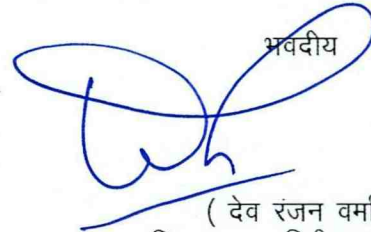 भवदीय
( देव रंजन वर्मा